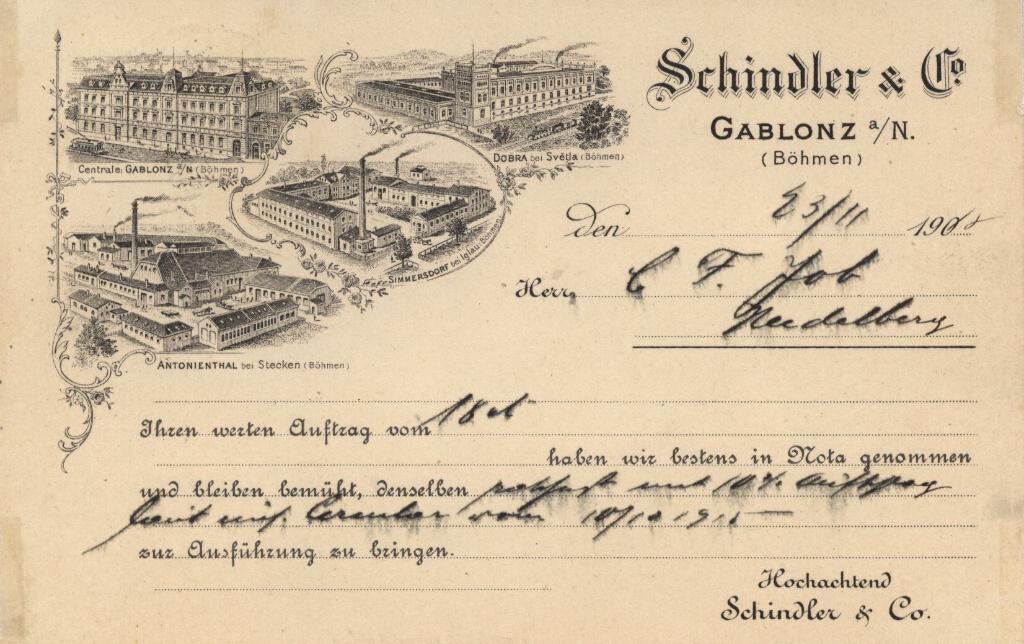 Schindler & Co
GABLONZ a/N.
(Böhmen)
Centrale: GABLONZ a/N (Böhmen)
DOBRA bei Světla (Böhmen)
SIMMERSDORF bei Iglau, Böhmen
ANTONIENTHAL bei Stecken (Böhmen)
Den 23/11 190
Herrn C F. Job
Heidelberg
Ihren werten Auftrag vom 18 ct
haben wir bestens in Nota genommen
und bleiben bemüht, denselben mit 10% Aufschlag
laut vom 10/10 1915
zur Ausführung zu bringen.
Hochachtend
Schindler & Co.